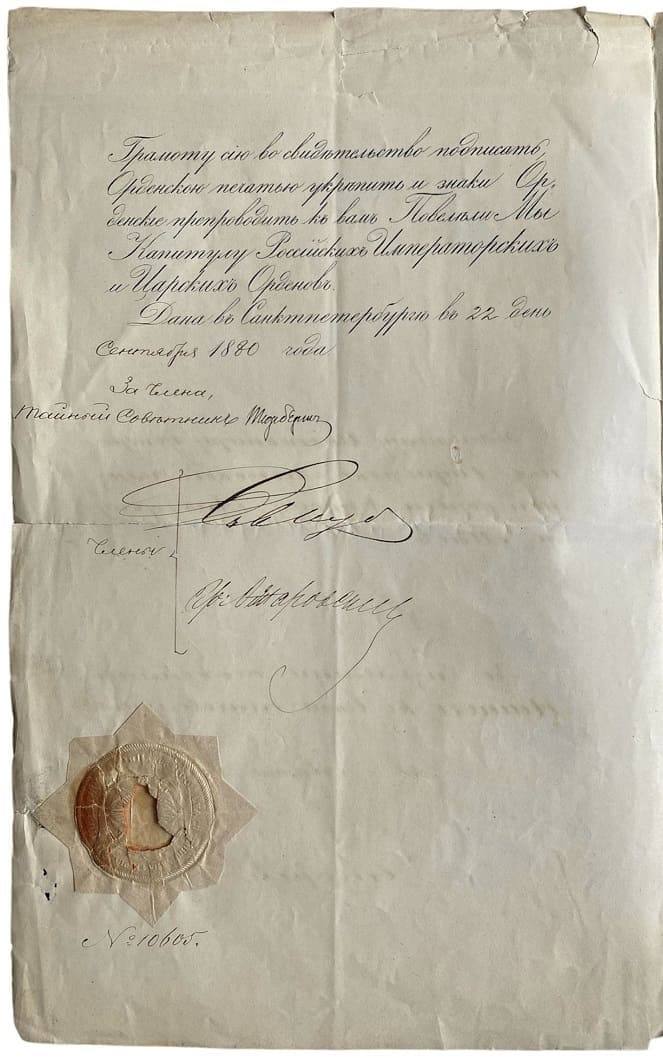 Грамоту сію во свидѣтельство подписать,
Орденскою печатью укрѣпить и знаки Ор-
денскіе препроводить къ вамъ Повелѣли Мы
Капитулу Россійскихъ Императорскихъ
и Царскихъ Орденовъ.
Дана въ Санктпетербургѣ въ 22 день
Сентября 1880 года
За Члена,
Тайный Совѣтникъ
Члены
№ 10605.